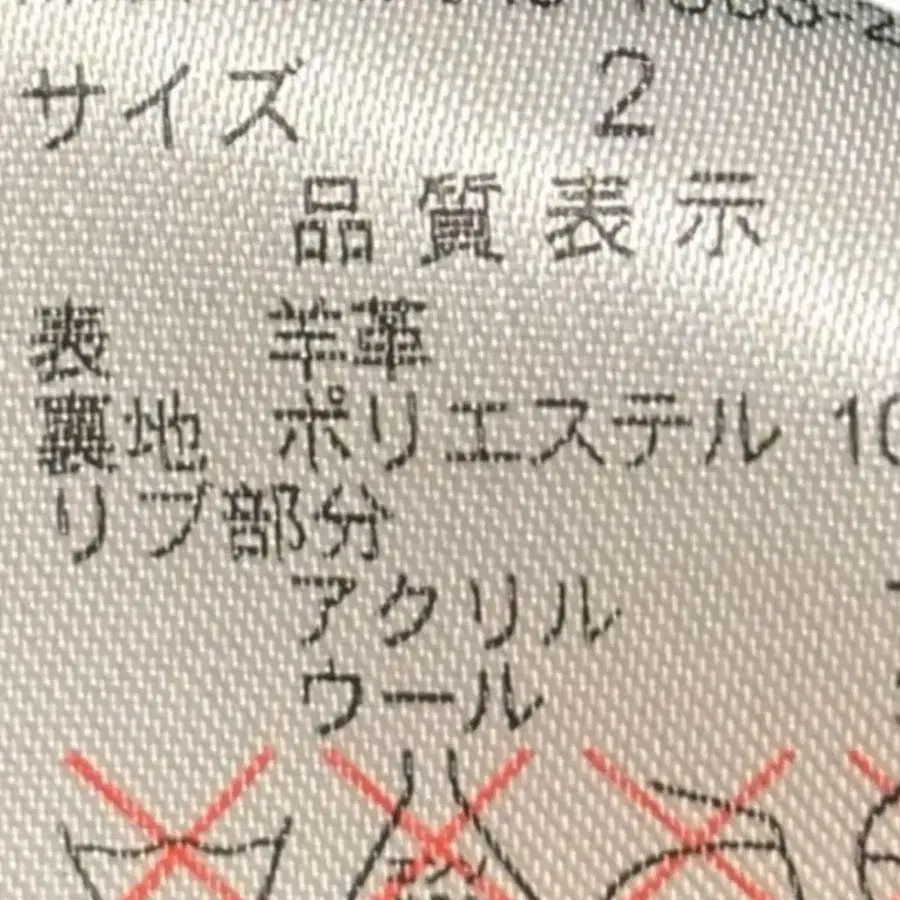 サイズ 2
品質表示
表 羊革
裏地 ポリエステル 10
リブ部分
アクリル
ウール